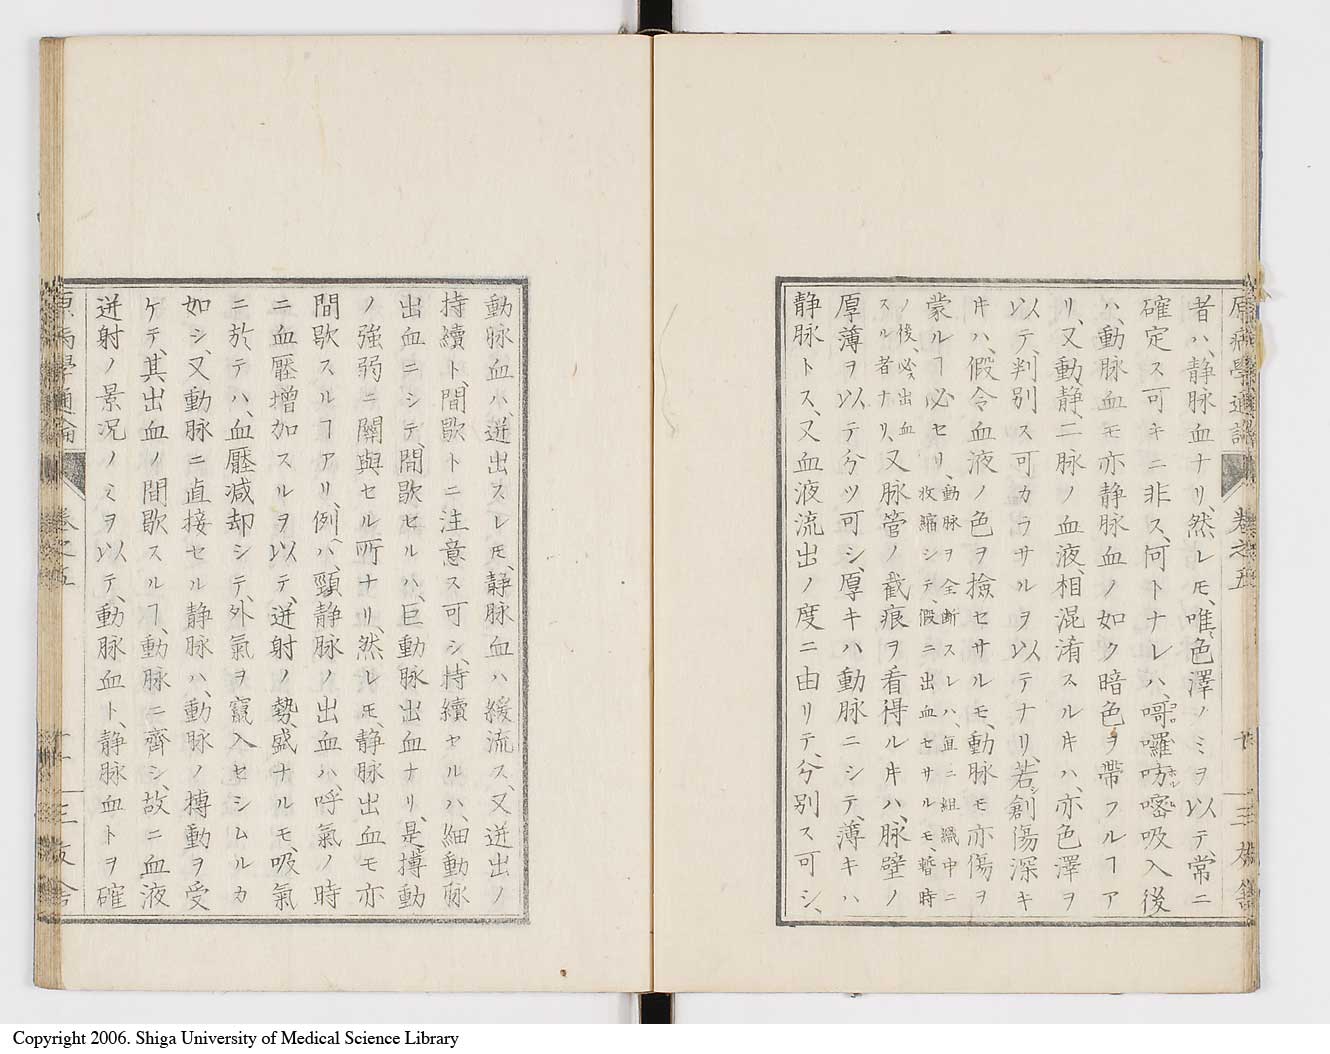 原病學通論 卷之五
者ハ、静脉血ナリ、然レ𪜈、唯色澤ノミヲ以テ常ニ
確定ス可キニ非ス、何トナレハ、哥囉吩嘧吸入後
ハ、動脉血モ亦静脉血ノ如ク暗色ヲ帶フルヿア
リ、又動静二脉ノ血液、相混淆スル𪜈ハ、亦色澤ヲ
以テ、判別ス可カラサルヲ以テナリ、若シ創傷深キ
𪜈ハ、假令血液ノ色ヲ撿セサルモ、動脉モ亦傷ヲ
蒙ルヿ必セリ、動脉ヲ全断スレハ、直ニ組織中ニ
收縮シテ、假ニ出血セサルモ、暫時
ノ後、必ス出血
スル者ナリ、又脉管ノ截痕ヲ看得ル𪜈ハ、脉壁ノ
厚薄ヲ以テ分ツ可シ、厚キハ動脉ニシテ、薄キハ
静脉トス、又血液流出ノ度ニ由リテ、分別ス可シ、
動脉血ハ、迸出スレ𪜈、静脉血ハ緩流ス、又迸出ノ
持續ト、間歇トニ注意ス可シ、持續セルハ、細動脉
出血ニシテ、間歇セルハ、巨動脉出血ナリ、是、搏動
ノ強弱ニ關與セル所ナリ、然レ𪜈、静脉出血モ亦
間歇スルヿアリ、例ヘハ、頸静脉ノ出血ハ、呼氣ノ時
ニ血壓增加スルヲ以テ、迸射ノ勢、盛ナルモ、吸氣
ニ於テハ、血壓減却シテ、外氣ヲ竄入セシムルカ
如シ、又動脉ニ直接セル静脉ハ、動脉ノ搏動ヲ受
ケテ、其出血ノ間歇スルヿ、動脉ニ齊シ、故ニ血液
迸射ノ景況ノミヲ以テ、動脉血ト、静脉血トヲ確
原病學通論 卷之五
Copyright 2006. Shiga University of Medical Science Library